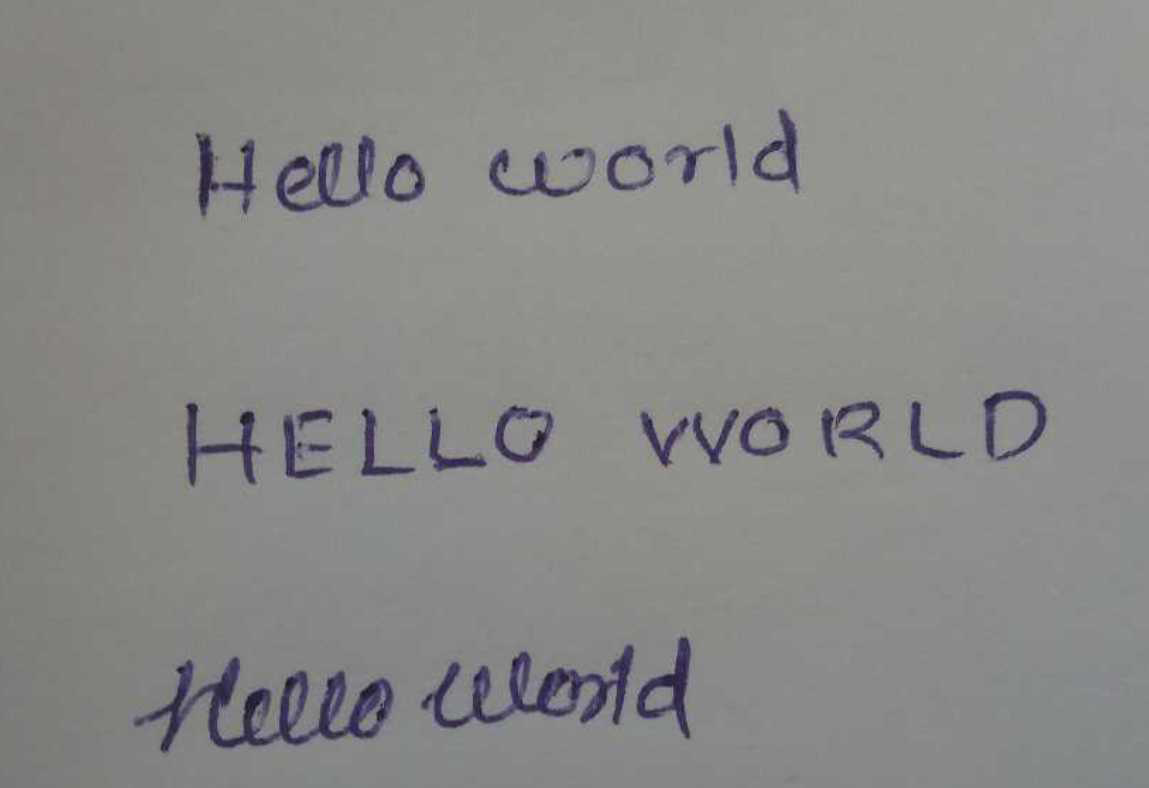 Hello world
HELLO WORLD
Hello World